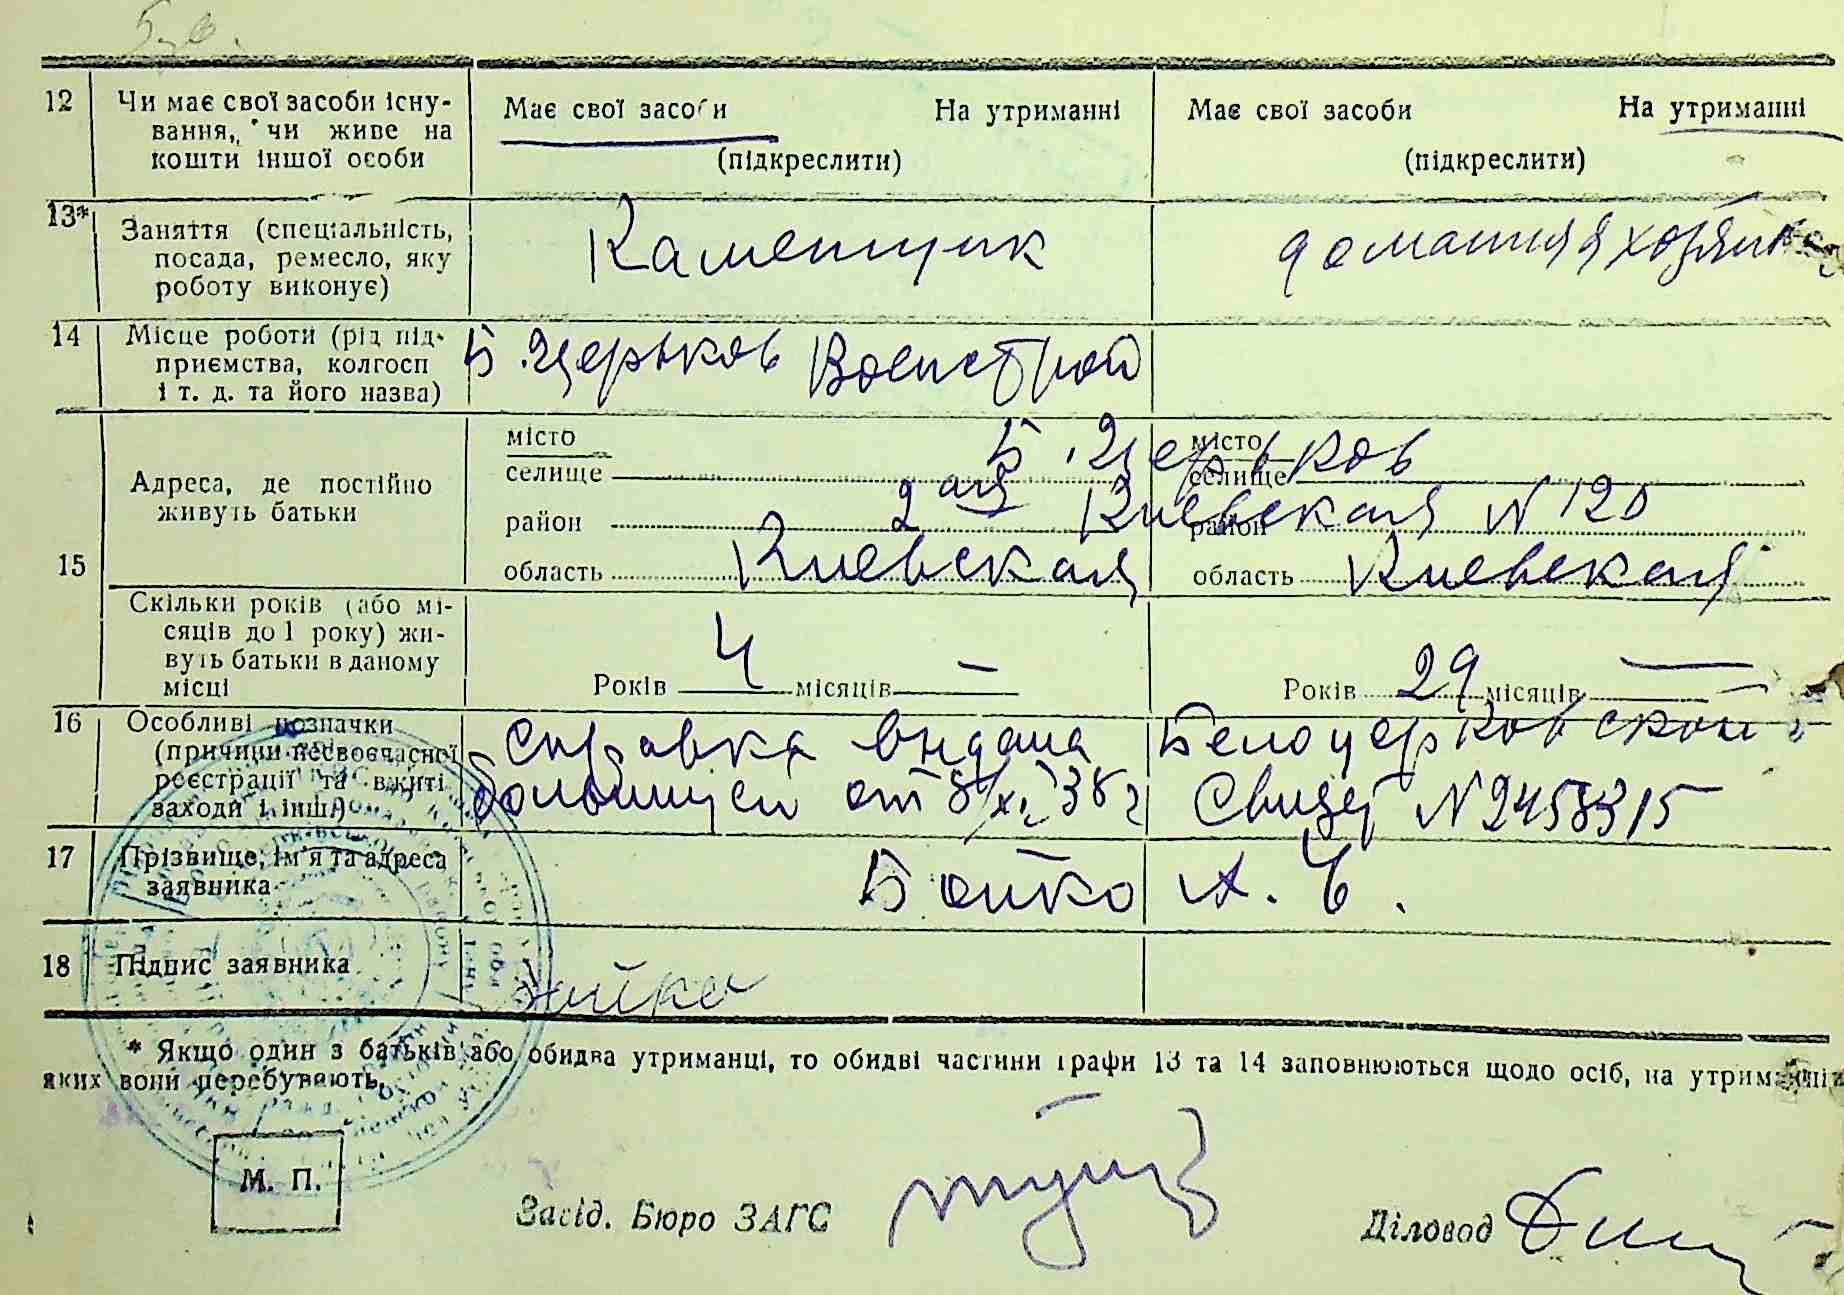 12 Чи має свої засоби існу-
вання, чи живе на
кошти іншої особи
Має свої засоби На утриманні
(підкреслити)
Має свої засоби На утриманні
(підкреслити)
13* Заняття (спеціальність,
посада, ремесло, яку
роботу виконує)
Каменщик
домашняя хозяйка
14 Місце роботи (рід під-
приємства, колгосп
і т. д. та його назва)
Б.Церьков Военстрой
15 Адреса, де постійно
живуть батьки
місто
селище
район
область
місто
селище
район
область
Б.Церьков
2ая Киевская N 120
Киевская
Киевская
Скільки років (або мі-
сяців до 1 року) жи-
вуть батьки в даному
місці
Років 4 місяців —
Років 29 місяців —
16 Особливі позначки
(причини несвоєчасної
реєстрації та вжиті
заходи і інші)
Справка выдана Белоцерковской
больницей от 8/XI 38 г Свидет N2458315
17 Прізвище, ім'я та адреса
заявника
Бойко А. Ч.
18 Підпис заявника
Бойко
* Якщо один з батьків або обидва утриманці, то обидві частини графи 13 та 14 заповнюються щодо осіб, на утриманні
яких вони перебувають.
М. П.
Завід. Бюро ЗАГС
Діловод